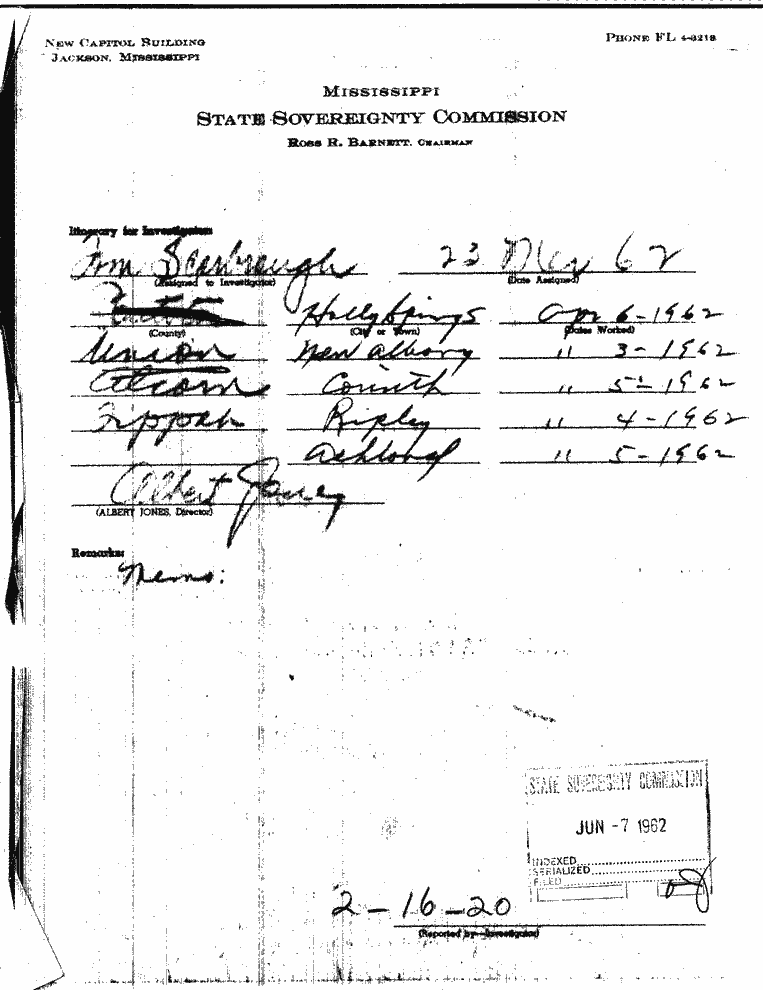 NEW CAPITOL BUILDING
JACKSON, MISSISSIPPI
PHONE FL 4-3218
MISSISSIPPI
STATE SOVEREIGNTY COMMISSION
ROSS R. BARNETT, CHAIRMAN
Itinerary for Investigator:
Tom Scarbrough 23 Mar 62
(Assigned to Investigator) (Date Assigned)
Holly Springs Apr 6-1962
(County) (City or Town) (Dates Worked)
Union New Albany " 3-1962
Alcorn Corinth " 5-1962
Tippah Ripley " 4-1962
Ashland " 5-1962
Albert Jones
(ALBERT JONES, Director)
Remarks:
Memo:
STATE SOVEREIGNTY COMMISSION
JUN -7 1962
INDEXED
SERIALIZED
FILED
2-16-20
(Reported by—Investigator)